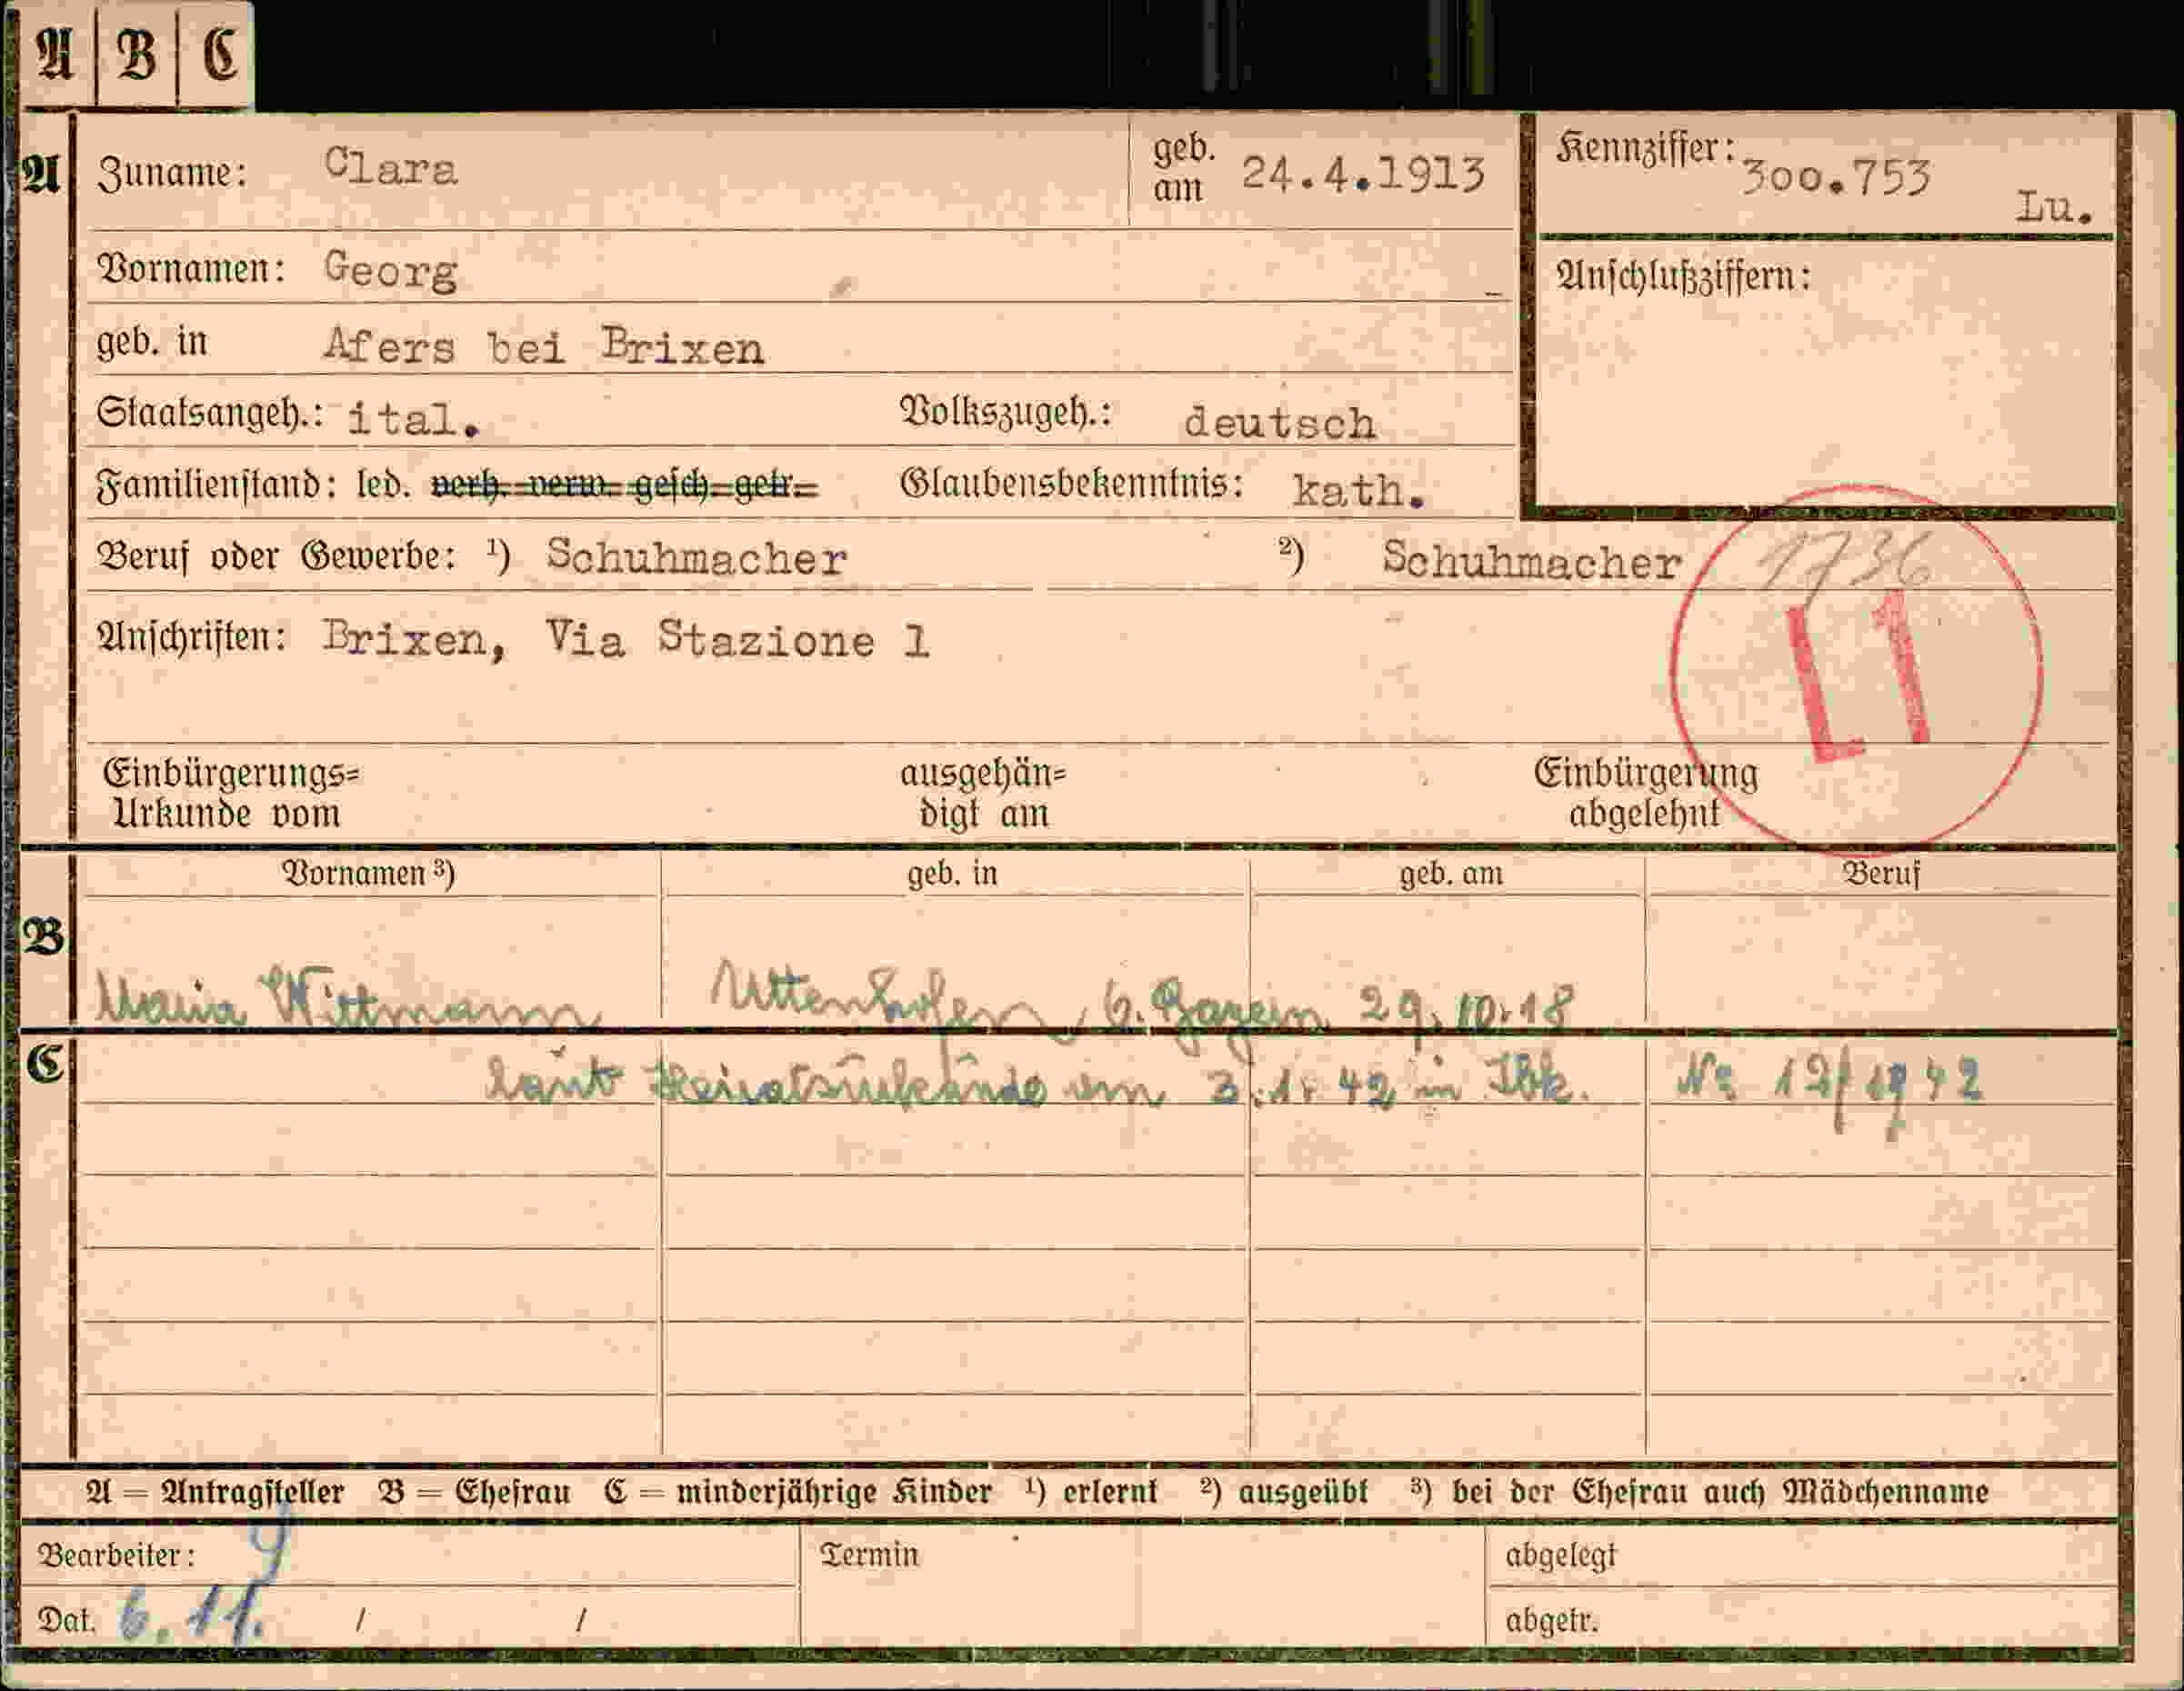 A B C
A Zuname: Clara geb. am 24.4.1913 Kennziffer: 300.753 Lu.
Vornamen: Georg Anschlußziffern:
geb. in Afers bei Brixen
Staatsangeh.: ital. Volkszugeh.: deutsch
Familienstand: led. verh. verw. gesch. getr. Glaubensbekenntnis: kath.
Beruf oder Gewerbe: ¹) Schuhmacher ²) Schuhmacher 1736
Anschriften: Brixen, Via Stazione 1 L1
Einbürgerungs= ausgehän= Einbürgerung
Urkunde vom digt am abgelehnt
Vornamen ³) geb. in geb. am Beruf
B
Maria Wittmann Uttenhofen, b. 29.10.18
C laut Heiratsurkunde vom 3.1.42 in Ibk. No 12/1942
A = Antragsteller B = Ehefrau C = minderjährige Kinder ¹) erlernt ²) ausgeübt ³) bei der Ehefrau auch Mädchenname
Bearbeiter: Termin abgelegt
Dat. 6.11. / / abgetr.